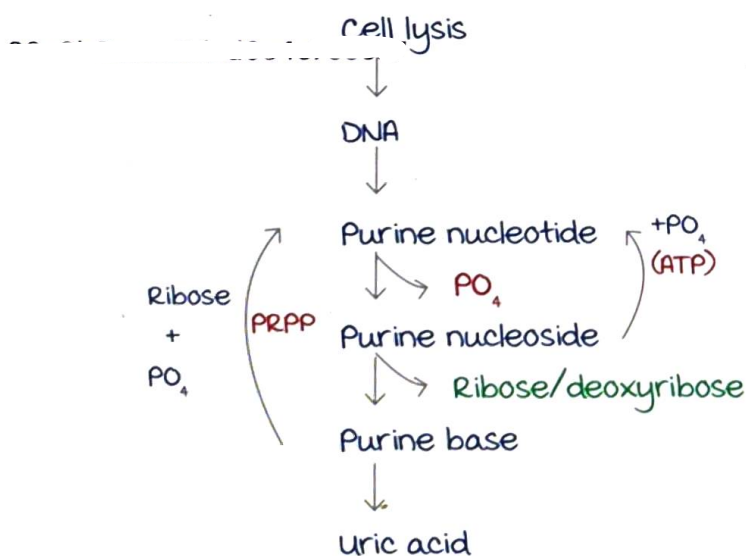 Cell lysis
DNA
Purine nucleotide
+PO₄
(ATP)
PO₄
Ribose
+
PO₄
PRPP
Purine nucleoside
Ribose/deoxyribose
Purine base
Uric acid